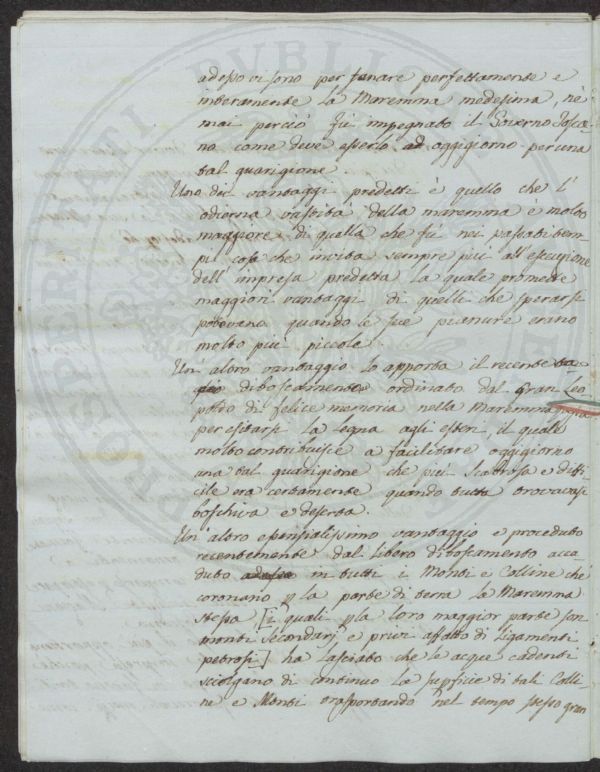 adesso vi sono per sanare perfettamente e
interamente la Maremma medesima, nè
mai perciò fu impegnato il Governo Tosca
no come deve esserlo ad oggigiorno per una
tal guarigione.
Uno dei vantaggi predetti è quello che l'
odierna vastità della maremma è molto
maggiore di quella che fu nei passati tem
pi cosa che invita sempre più all'esecuzione
dell'impresa predetta la quale promette
maggiori vantaggi di quelli che sperarsi
potevano quando le sue pianure erano
molto più piccole.
Un altro vantaggio lo apporta il recente ta
glio diboscamento ordinato dal Gran Leo
poldo di felice memoria nella Maremma
per esitarsi la legna agli esteri il quale
molto contribuisce a facilitare oggigiorno
una tal guarigione che più scabrosa e diffi
cile era certamente quando tutta trovavasi
boschiva e deserta.
Un altro essenzialissimo vantaggio è proceduto
recentemente dal libero diboscamento acca
duto adesso in tutti i Monti e Colline che
coronano p la parte di terra la Maremma
stessa [i quali p la loro maggior parte son
monti secondarj e privi affatto di ligamenti
petrosi] ha lasciato che le acque cadenti
sciolgano di continuo la supficie di tali Colli
ne e Monti trasportando nel tempo stesso gran
PROSPERITATI PVBLICAE